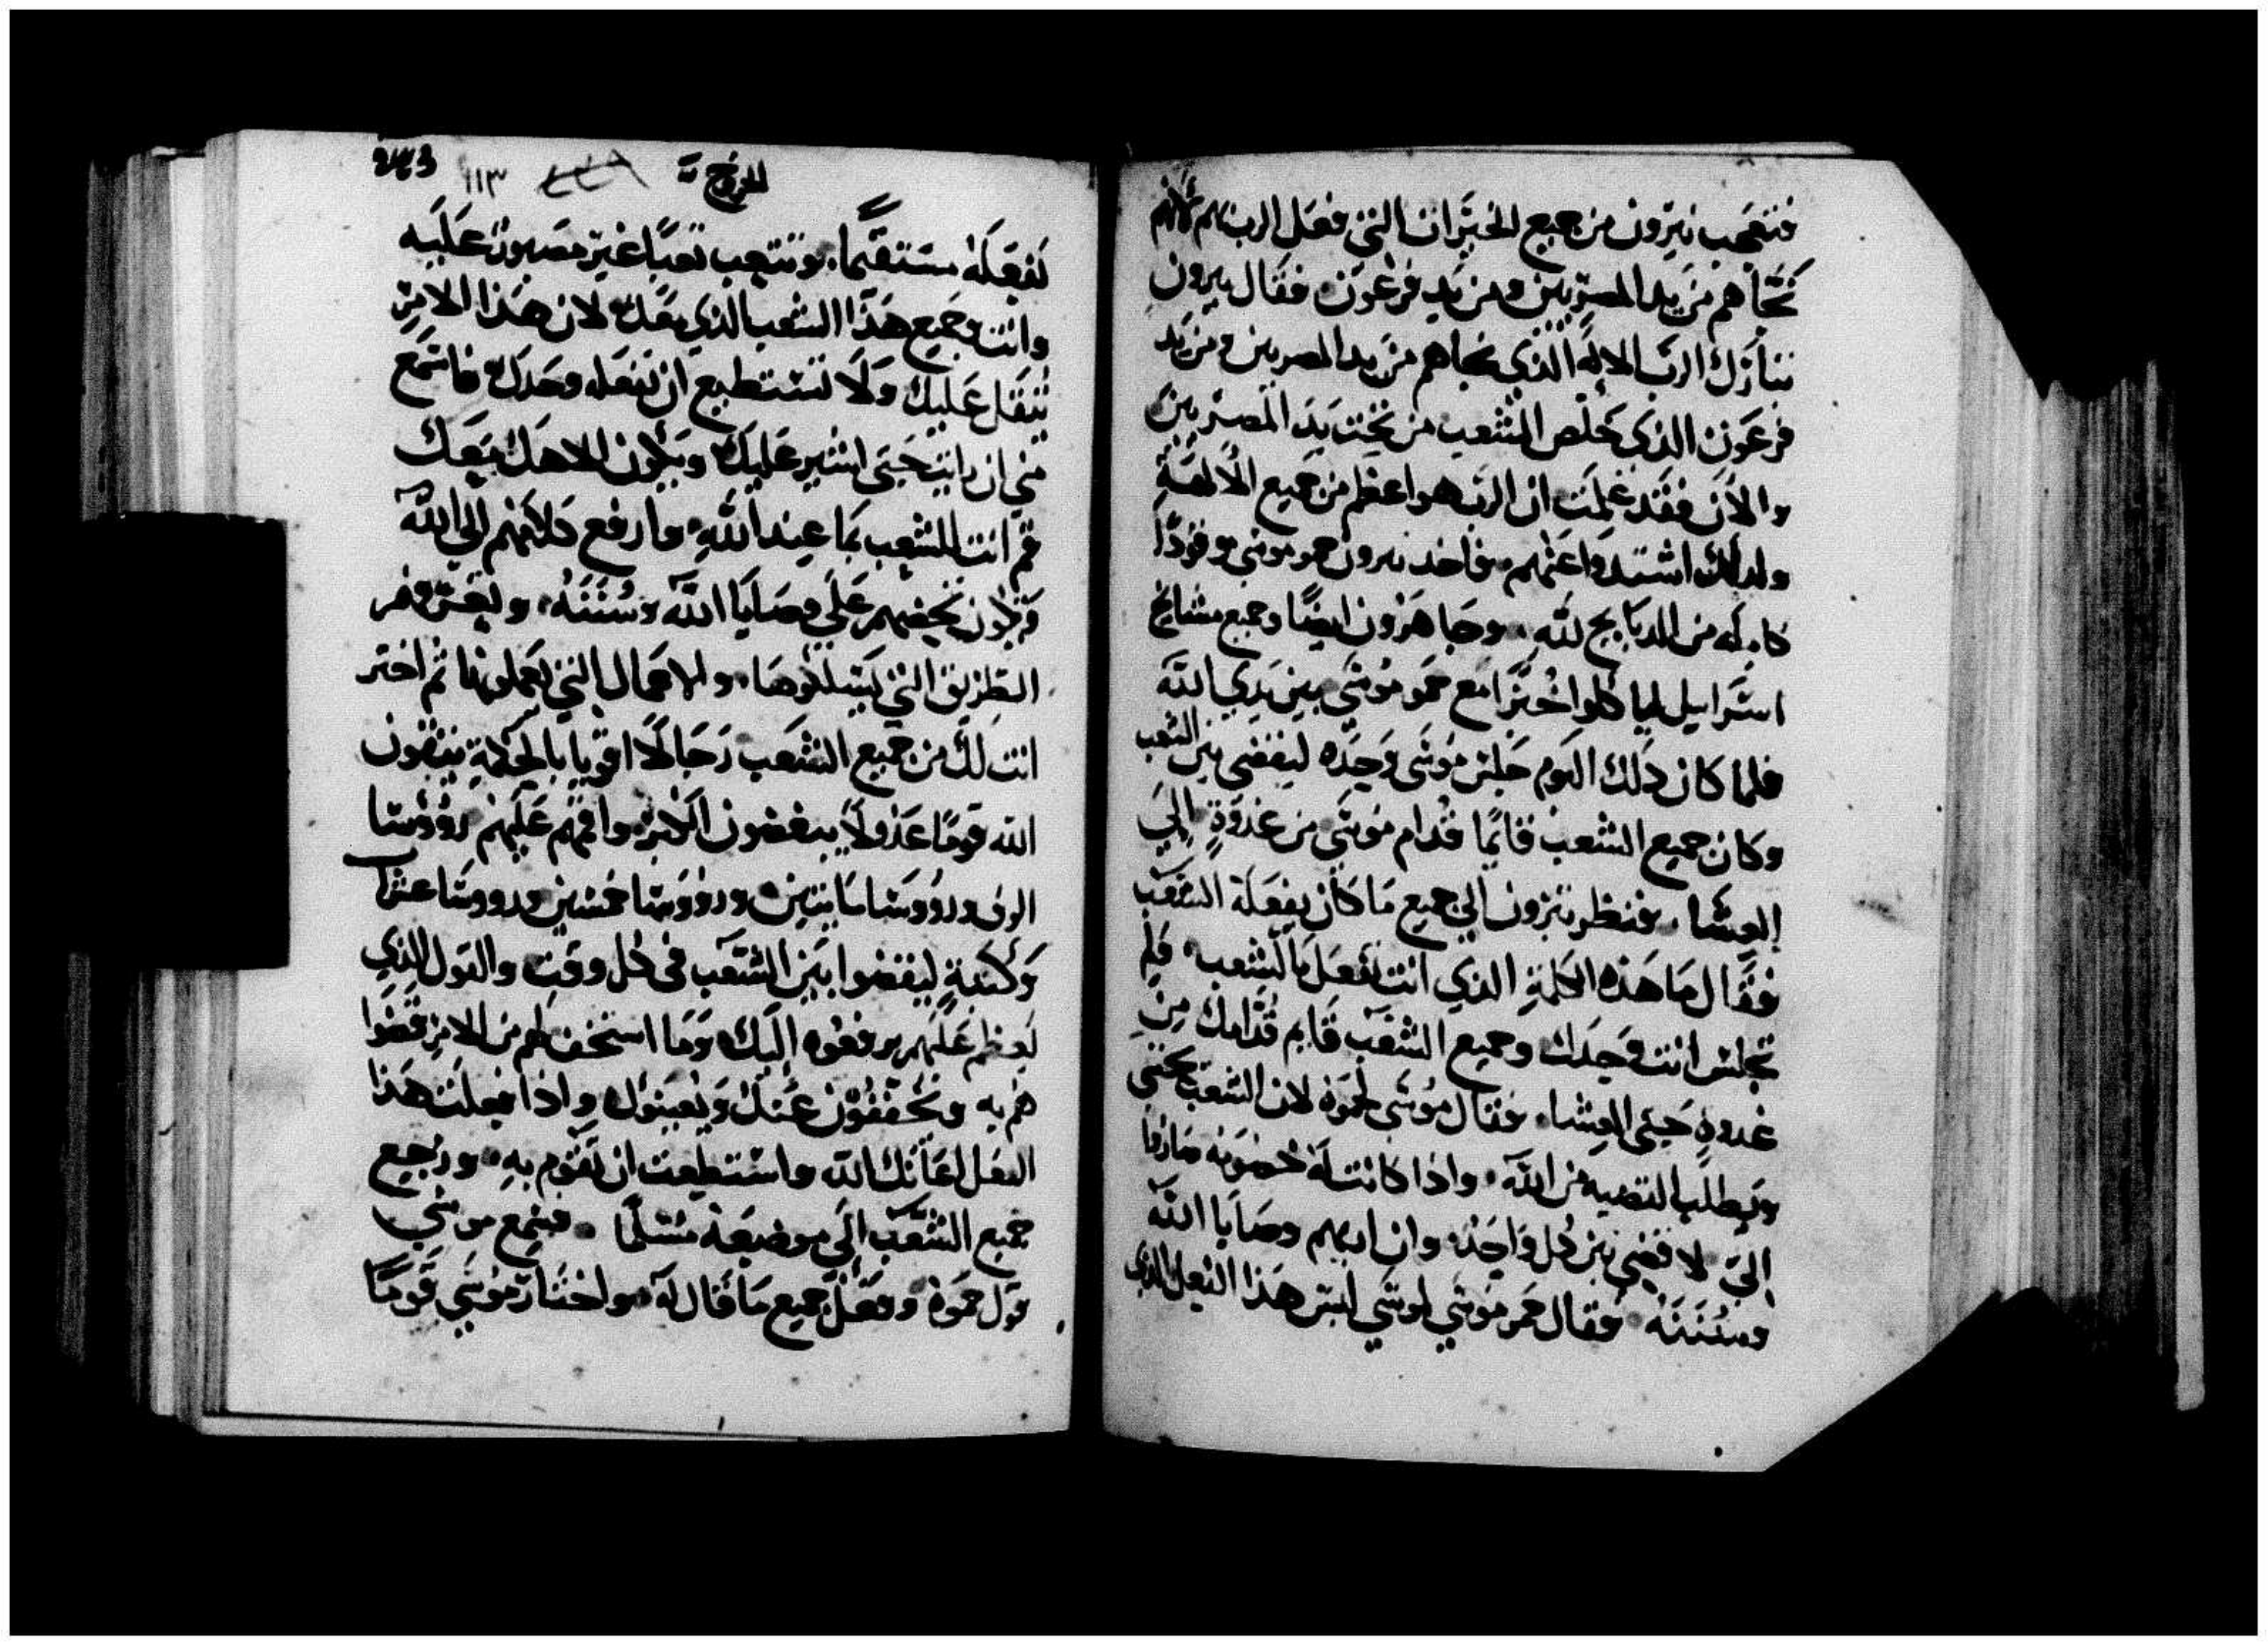 فتعجب يترون من جميع الخيرات التي فعل الرب بهم لانه
نجاهم من يد المصريين ومن يد فرعون فقال يترون
تبارك الرب الاله الذي نجاهم من يد المصريين ومن يد
فرعون الذي خلص الشعب من تحت يد المصريين
والان فقد علمت ان الرب هو اعظم من جميع الالهة
ولدلك اشتدوا عليهم فاخد يترون حمو موسى وقودا
كامله من الدبايح لله وجا هرون ايضا وجميع مشايخ
اسرايل لياكلوا خبزا مع حمو موسى بين يدي الله
فلما كان دلك اليوم جلس موسى وحده ليقضي بين الشعب
وكان جميع الشعب قايما قدام موسى من غدوة الى
العشا فنظر يترون الي جميع ما كان يفعله الشعب
فقال ما هذه الكلمة الذي انت تفعل بالشعب فلم
تجلس انت وحدك وجميع الشعب قايم قدامك من
غدوة حتى العشا فقال موسى لحموه لان الشعب يجي
ويطلب القضيه من الله واذا كانت له خصومه صاروا
الي لاقضي بين كل واحد وان اريهم وصايا الله
وسننه فقال حمو موسي لموسي ليس هذا الفعل الذي
الخروج ١١٣
تفعله مستقيما وتتعب تعبا غير مصبور عليه
وانت وجميع هذا الشعب الذي معك لان هذا الامر
يثقل عليك ولا تستطيع ان تفعله وحدك فاسمع
مني ان رايت حتى اشير عليك ويكون الله معك
قم انت للشعب بما عند الله وارفع كلامهم الي الله
وتكون تحضهم على وصايا الله وسننه وتعرفهم
الطريق التي يسلكوها والاعمال التي يعملونها ثم اختر
انت لك من جميع الشعب رجالا اقويا بالحكمة يتقون
الله قوما عدولا يبغضون الكبر واقمهم عليهم رووسا
الوف ورووسا مايتين ورووسا خمسين ورووسا عشرا
وكتبة ليقضوا بين الشعب في كل وقت والقول الذي
يعظم عليهم يرفعوه اليك وما استخف لهم من الامر قضوا
هم به ويخففون عنك ويعينوك واذا فعلت هذا
الفعل اعانك الله واستطعت ان تقوم به ورجع
جميع الشعب الى موضعه مسلما فسمع موسي
قول حموه وفعل جميع ما قال له واختار موسي قوما